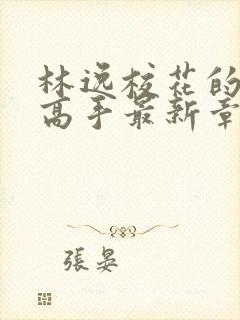 林逸校花的
高手最新章
張晏